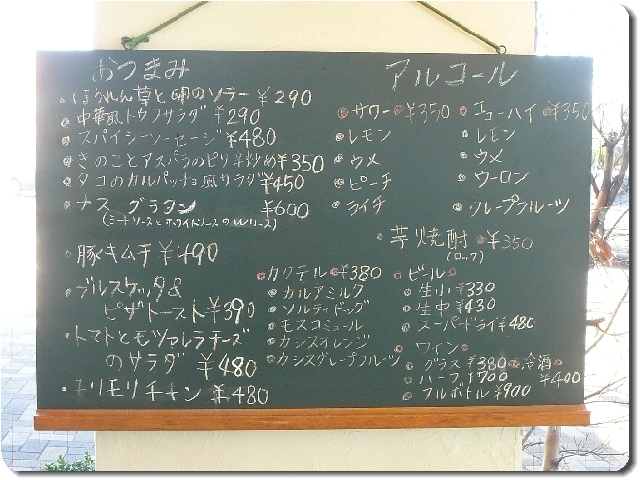 おつまみ
・ほうれん草と卵のソテー ¥290
・中華風トウフサラダ ¥290
・スパイシーソーセージ ¥480
・きのことアスパラのピリ辛炒め ¥350
・タコのカルパッチョ風サラダ ¥450
・ナスグラタン ¥600
(ミートソースとホワイトソースのWソース)
・豚キムチ ¥490
・ブルスケッタ&
ピザトースト ¥390
・トマトとモッツァレラチーズ
のサラダ ¥480
・モリモリチキン ¥480
アルコール
サワー ¥350
レモン
ウメ
ピーチ
ライチ
チューハイ ¥350
レモン
ウメ
ウーロン
グレープフルーツ
芋焼酎 ¥350
(ロック)
カクテル ¥380
カルアミルク
ソルティドッグ
モスコミュール
カシスオレンジ
カシスグレープフルーツ
ビール
生小 ¥330
生中 ¥430
スーパードライ ¥480
ワイン
グラス ¥380
ハーフ ¥700
フルボトル ¥900
冷酒
¥400